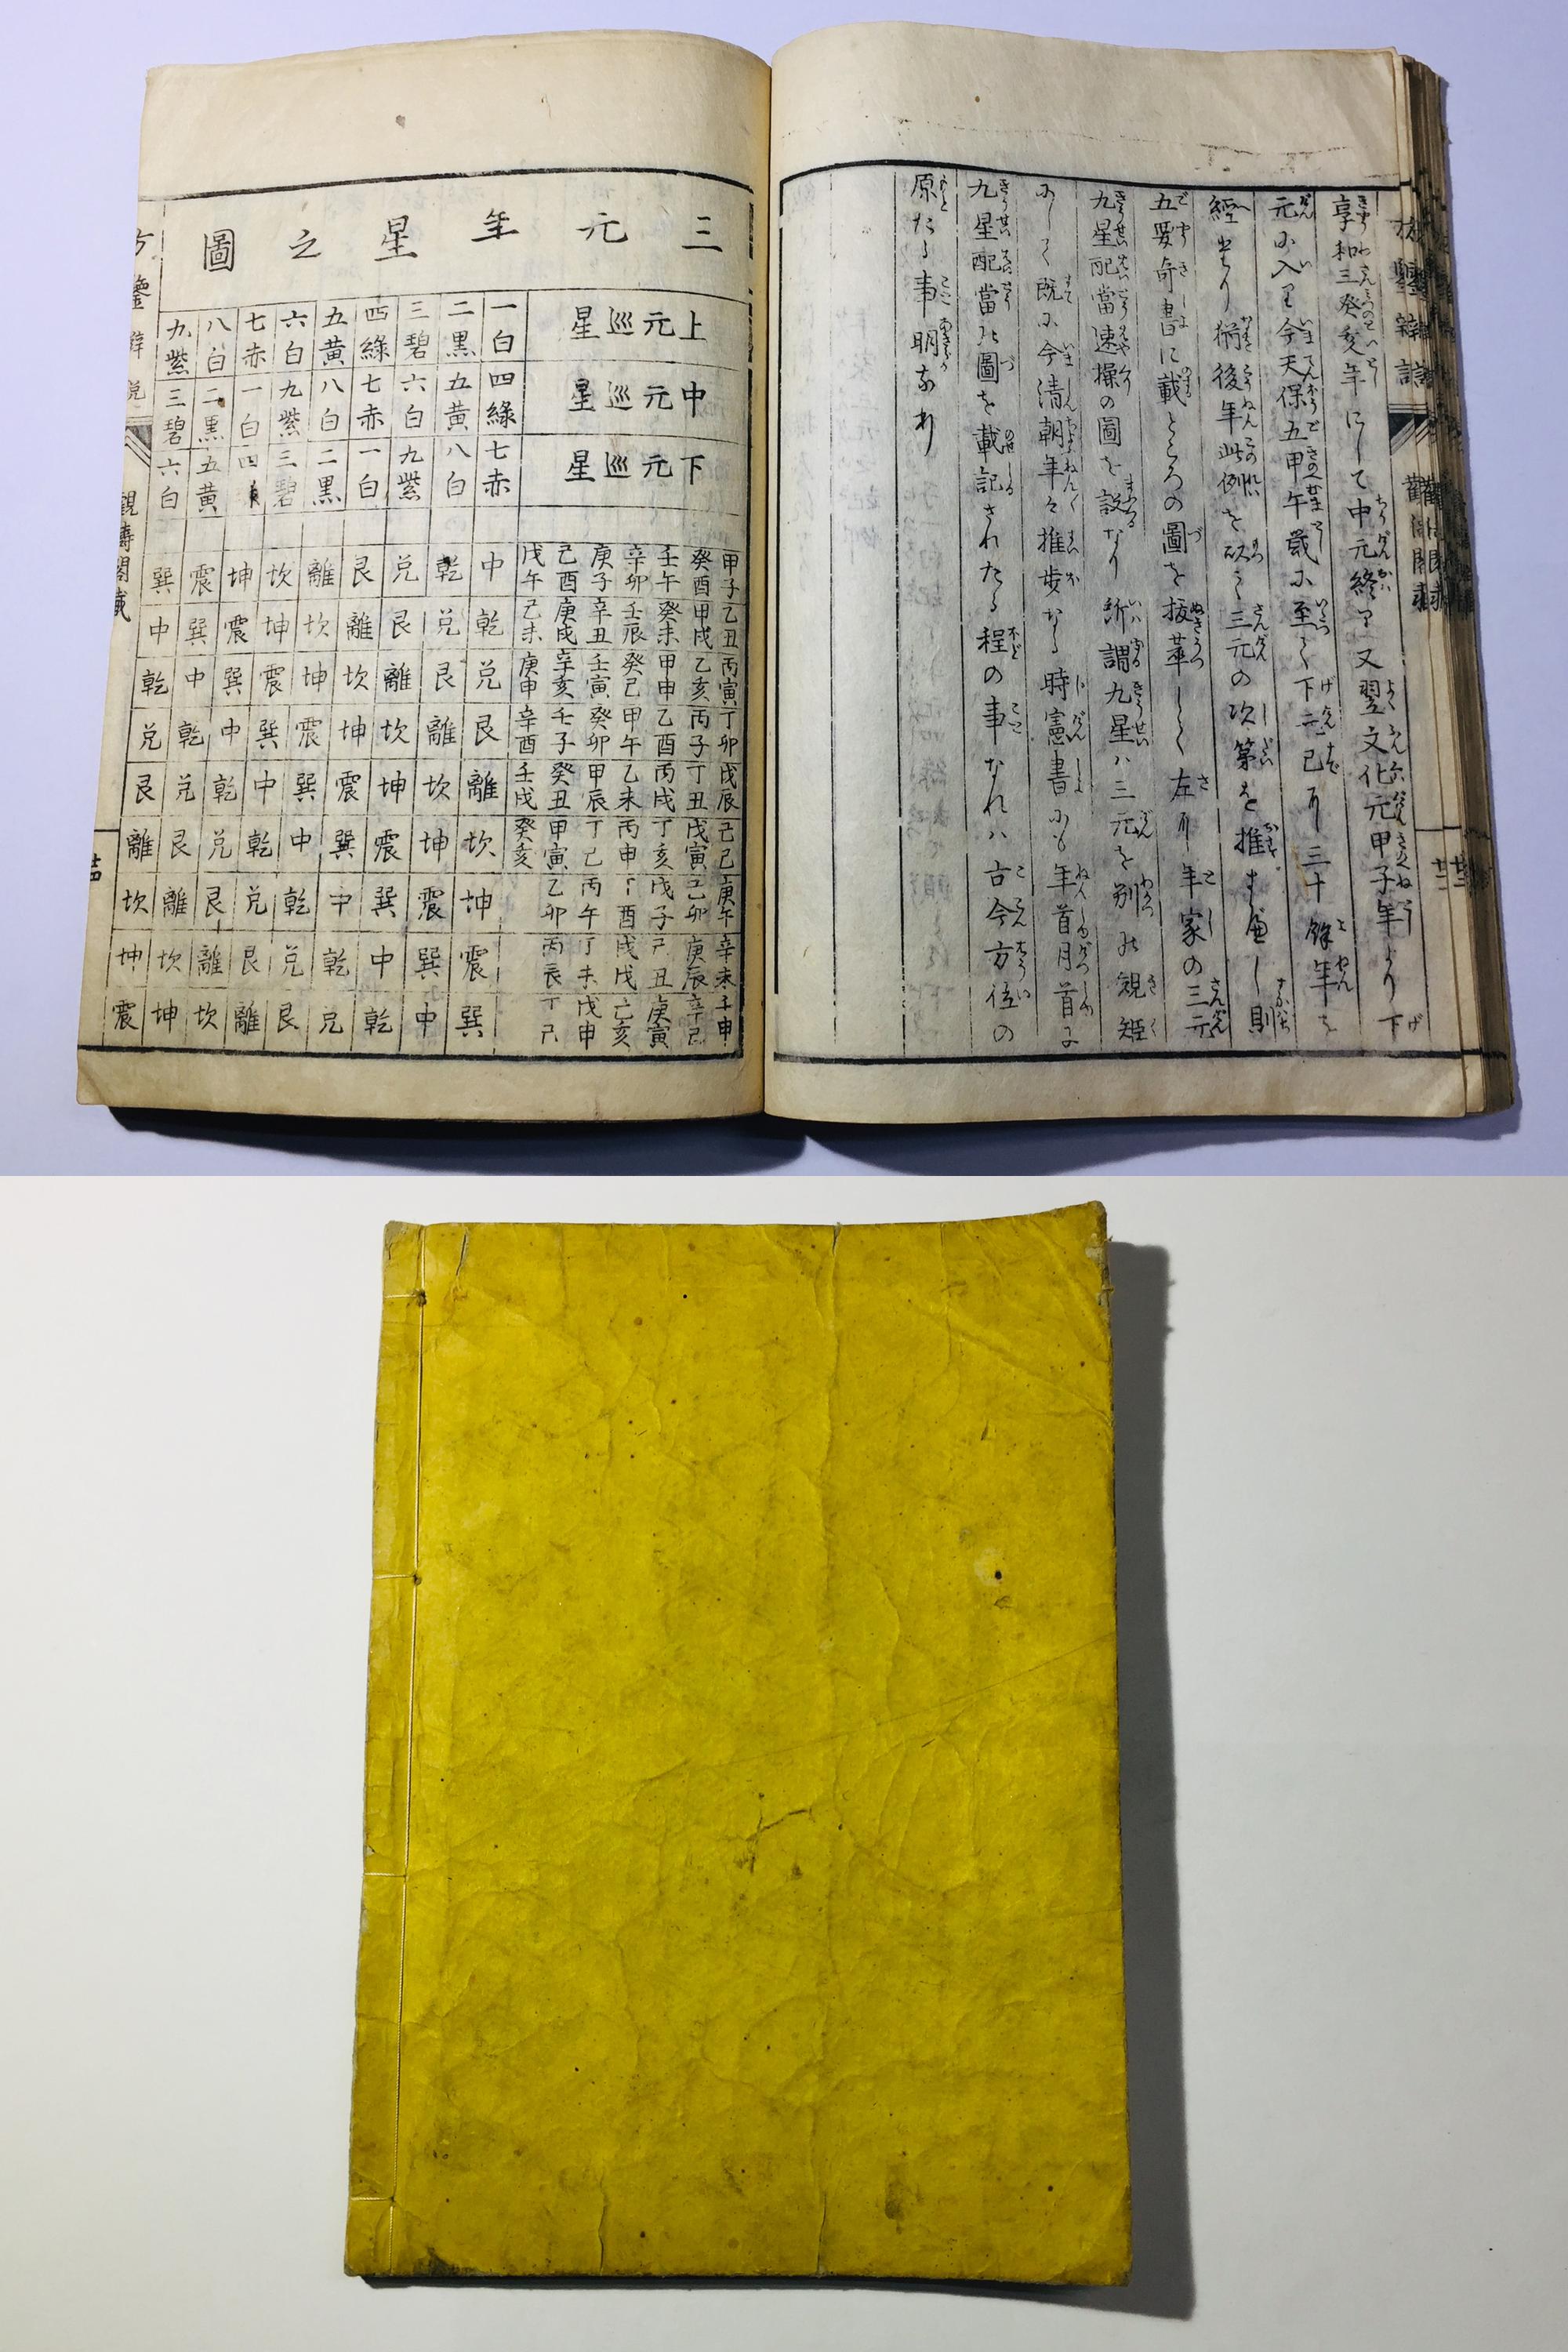 享和三癸亥年にして中元終り又翌文化元甲子年より下
元に入りて今天保五甲午歳に至て下元已に三十餘年を
經たり猶後年此例を以て三元の次第を推すべし則
五要奇書に載ところの圖を抜萃して左に年家の三元
九星配當速操の圖を説なり所謂九星ハ三元を別の規矩
にして既に今清朝年々推歩なる時憲書にも年首月首に
九星配當の圖を載記されたる程の事なれハ古今方位の
原たる事明なり
三元年星之圖
上元巡星
中元巡星
下元巡星
甲子 乙丑 丙寅 丁卯 戊辰 己巳 庚午 辛未 壬申
癸酉 甲戌 乙亥 丙子 丁丑 戊寅 己卯 庚辰 辛巳
壬午 癸未 甲申 乙酉 丙戌 丁亥 戊子 己丑 庚寅
辛卯 壬辰 癸巳 甲午 乙未 丙申 丁酉 戊戌 己亥
庚子 辛丑 壬寅 癸卯 甲辰 丁巳 丙午 丁未 戊申
己酉 庚戌 辛亥 壬子 癸丑 甲寅 乙卯 丙辰 丁巳
戊午 己未 庚申 辛酉 壬戌 癸亥
一白 四綠 七赤 中 乾 兌 艮 離 坎 坤 震 巽
二黒 五黄 八白 乾 兌 艮 離 坎 坤 震 巽 中
三碧 六白 九紫 兌 艮 離 坎 坤 震 巽 中 乾
四綠 七赤 一白 艮 離 坎 坤 震 巽 中 乾 兌
五黄 八白 二黒 離 坎 坤 震 巽 中 乾 兌 艮
六白 九紫 三碧 坎 坤 震 巽 中 乾 兌 艮 離
七赤 一白 四 坤 震 巽 中 乾 兌 艮 離 坎
八白 二黒 五黄 震 巽 中 乾 兌 艮 離 坎 坤
九紫 三碧 六白 巽 中 乾 兌 艮 離 坎 坤 震
方鑒辯説
觀濤閣藏